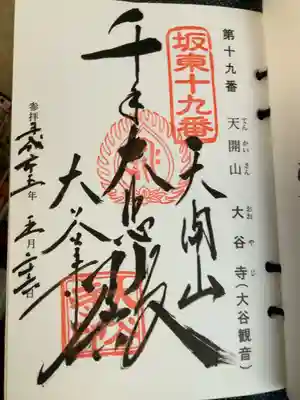 第十九番
天開山　大谷寺(大谷観音)
てん かい さん おお や じ
坂東十九番
天開山
千手大悲殿
大谷寺
参拝 平成二十五年 五月 日